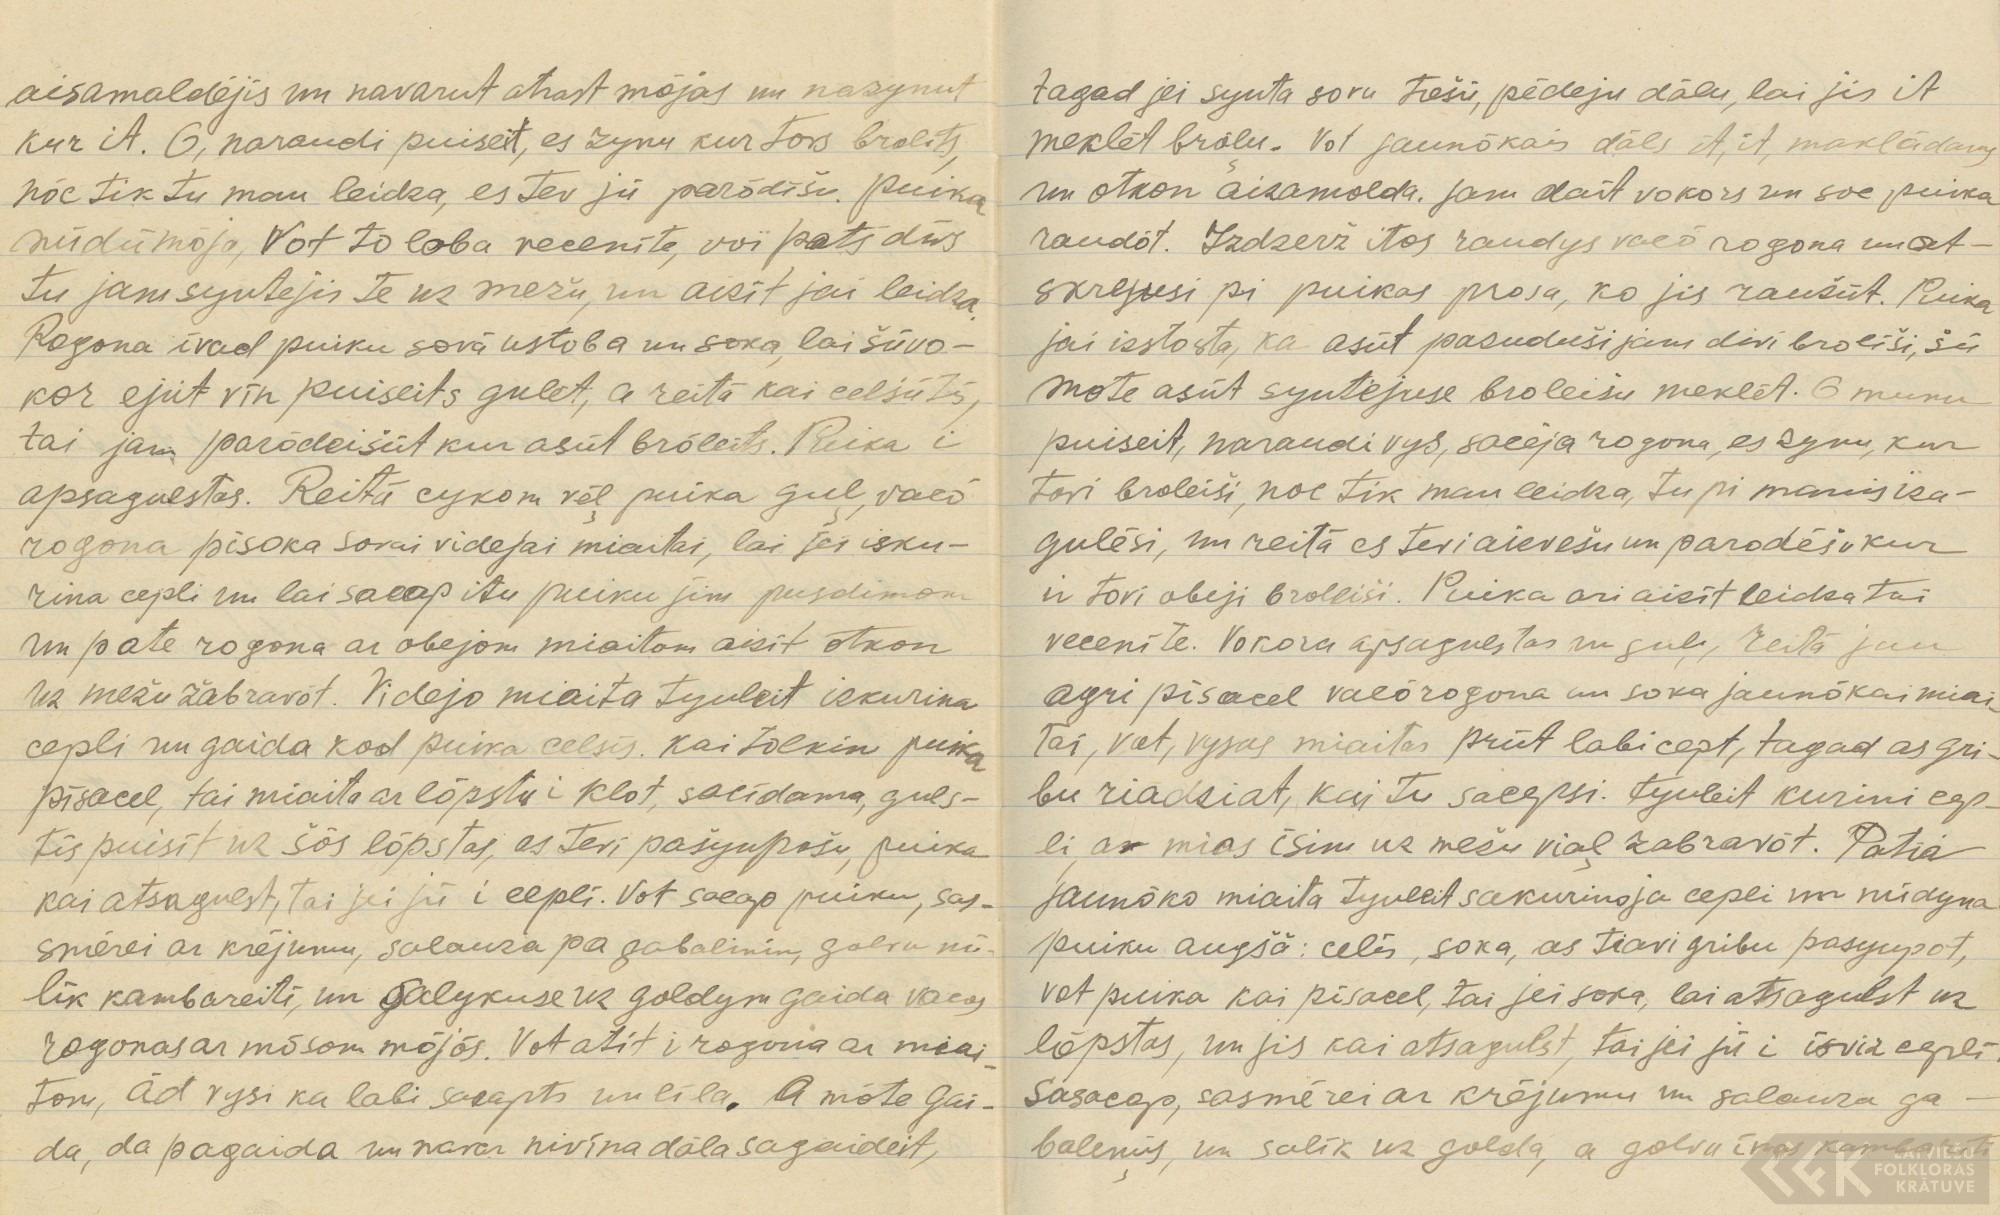 aisamaldéjis un navarut atrast mōjas un nazynut
kur it. O, naraudi puiseit, es zynu kur tovs brolits,
nōc tik tu man leidza, es tev jū parōdišu. Puika
nūdūmōja, Vot to loba vecenīte, voi pats dīvs
tu jam syutejis te uz mežu, un aizīt jai leidza.
Rogona īvad puiku sovā ustoba un soka, lai šūvo-
kor ejūt vīn puiseits gulēt, a reitā kai celšūtīs,
tai jam parōdeišūt kur asūt brōleits. Puika i
apsagulstas. Reitā cykom vēļ puika guļ, vacō
rogona pīsoka sovai videjai miaitai, lai jei izku-
rina cepli un lai sacap itu puiku jim pusdinom
un pate rogona ar obejom miaitom aizīt otkon
uz mežu žabravōt. Videjo miaita tyuleit izkurina
cepli un gaida kod puika celsīs. Kai tolkin puika
pīsacel, tai miaita ar lōpstu i klot, sacīdama, guls-
tīs puisīt uz šōs lōpstas, es tevi pašyupošu, puika
kai atsagulst, tai jei jū i ceplī. Vot sacap puiku, sas-
smērei ar krējumu, salauza pa gabalinim, golvu nū-
lik kambareitī, un salykuse uz goldym gaida vacos
rogonas ar mōsom mōjōs. Vot atīt i rogona ar miai-
tom, ād vysi ka labi sacapts un līla. A mōte gai-
da, da pagaida un navar nivīna dāla sagaideit,
tagad jei syuta sovu trešū, pēdeju dālu, lai jis it
meklēt brōļu. Vot jaunōkais dāls it, it, maklādams
un otkon aizamolda. Jam dait vokors un soc puika
raudōt. Izdzerž itos raudys vacō rogona un at-
skrejusi pi puikas prosa, ko jis raužūt. Puika
jai izstosta, ka asūt pazuduši jam divi broliši, šū
mote asūt syutejuse broleišu meklēt. O munu
puiseit, naraudi vys, sacēja rogona, es zynu, kur
tovi broleiši, noc tik man leidza, tu pi manis iza-
gulēsi, un reitā es tevi aizvešu un parodēšu kur
ir tovi obeji broleiši. Puika ari aizīt leidza tai
vecenīte. Vokoru apsagulstas un guļ, reitā jau
agri pīsacel vacō rogona un soka jaunōkai miai-
tai, vot, vysas miaitas prūt labi cept, tagad as gri-
bu riadziat, kai tu sacepsi. Tyuleit kurini cep-
li, a mias īsim uz mežu viaļ žabravōt. Patiа
jaunōko miaita tyuleit sakurinoja cepli un nūdyna
puiku augšā: celīs, soka, as tiavi gribu pasyupot,
vot puika kai pīsacel, tai jei soka, lai atsagulst uz
lōpstas, un jis kai atsagulst, tai jei jū i īsviz ceplī.
Sasacap, sasmērei ar krējumu un salauza ga-
baleņūs, un salik uz golda, a golvu īnas kambareitī
LATVIEŠU
FOLKLORAS
KRĀTUVE